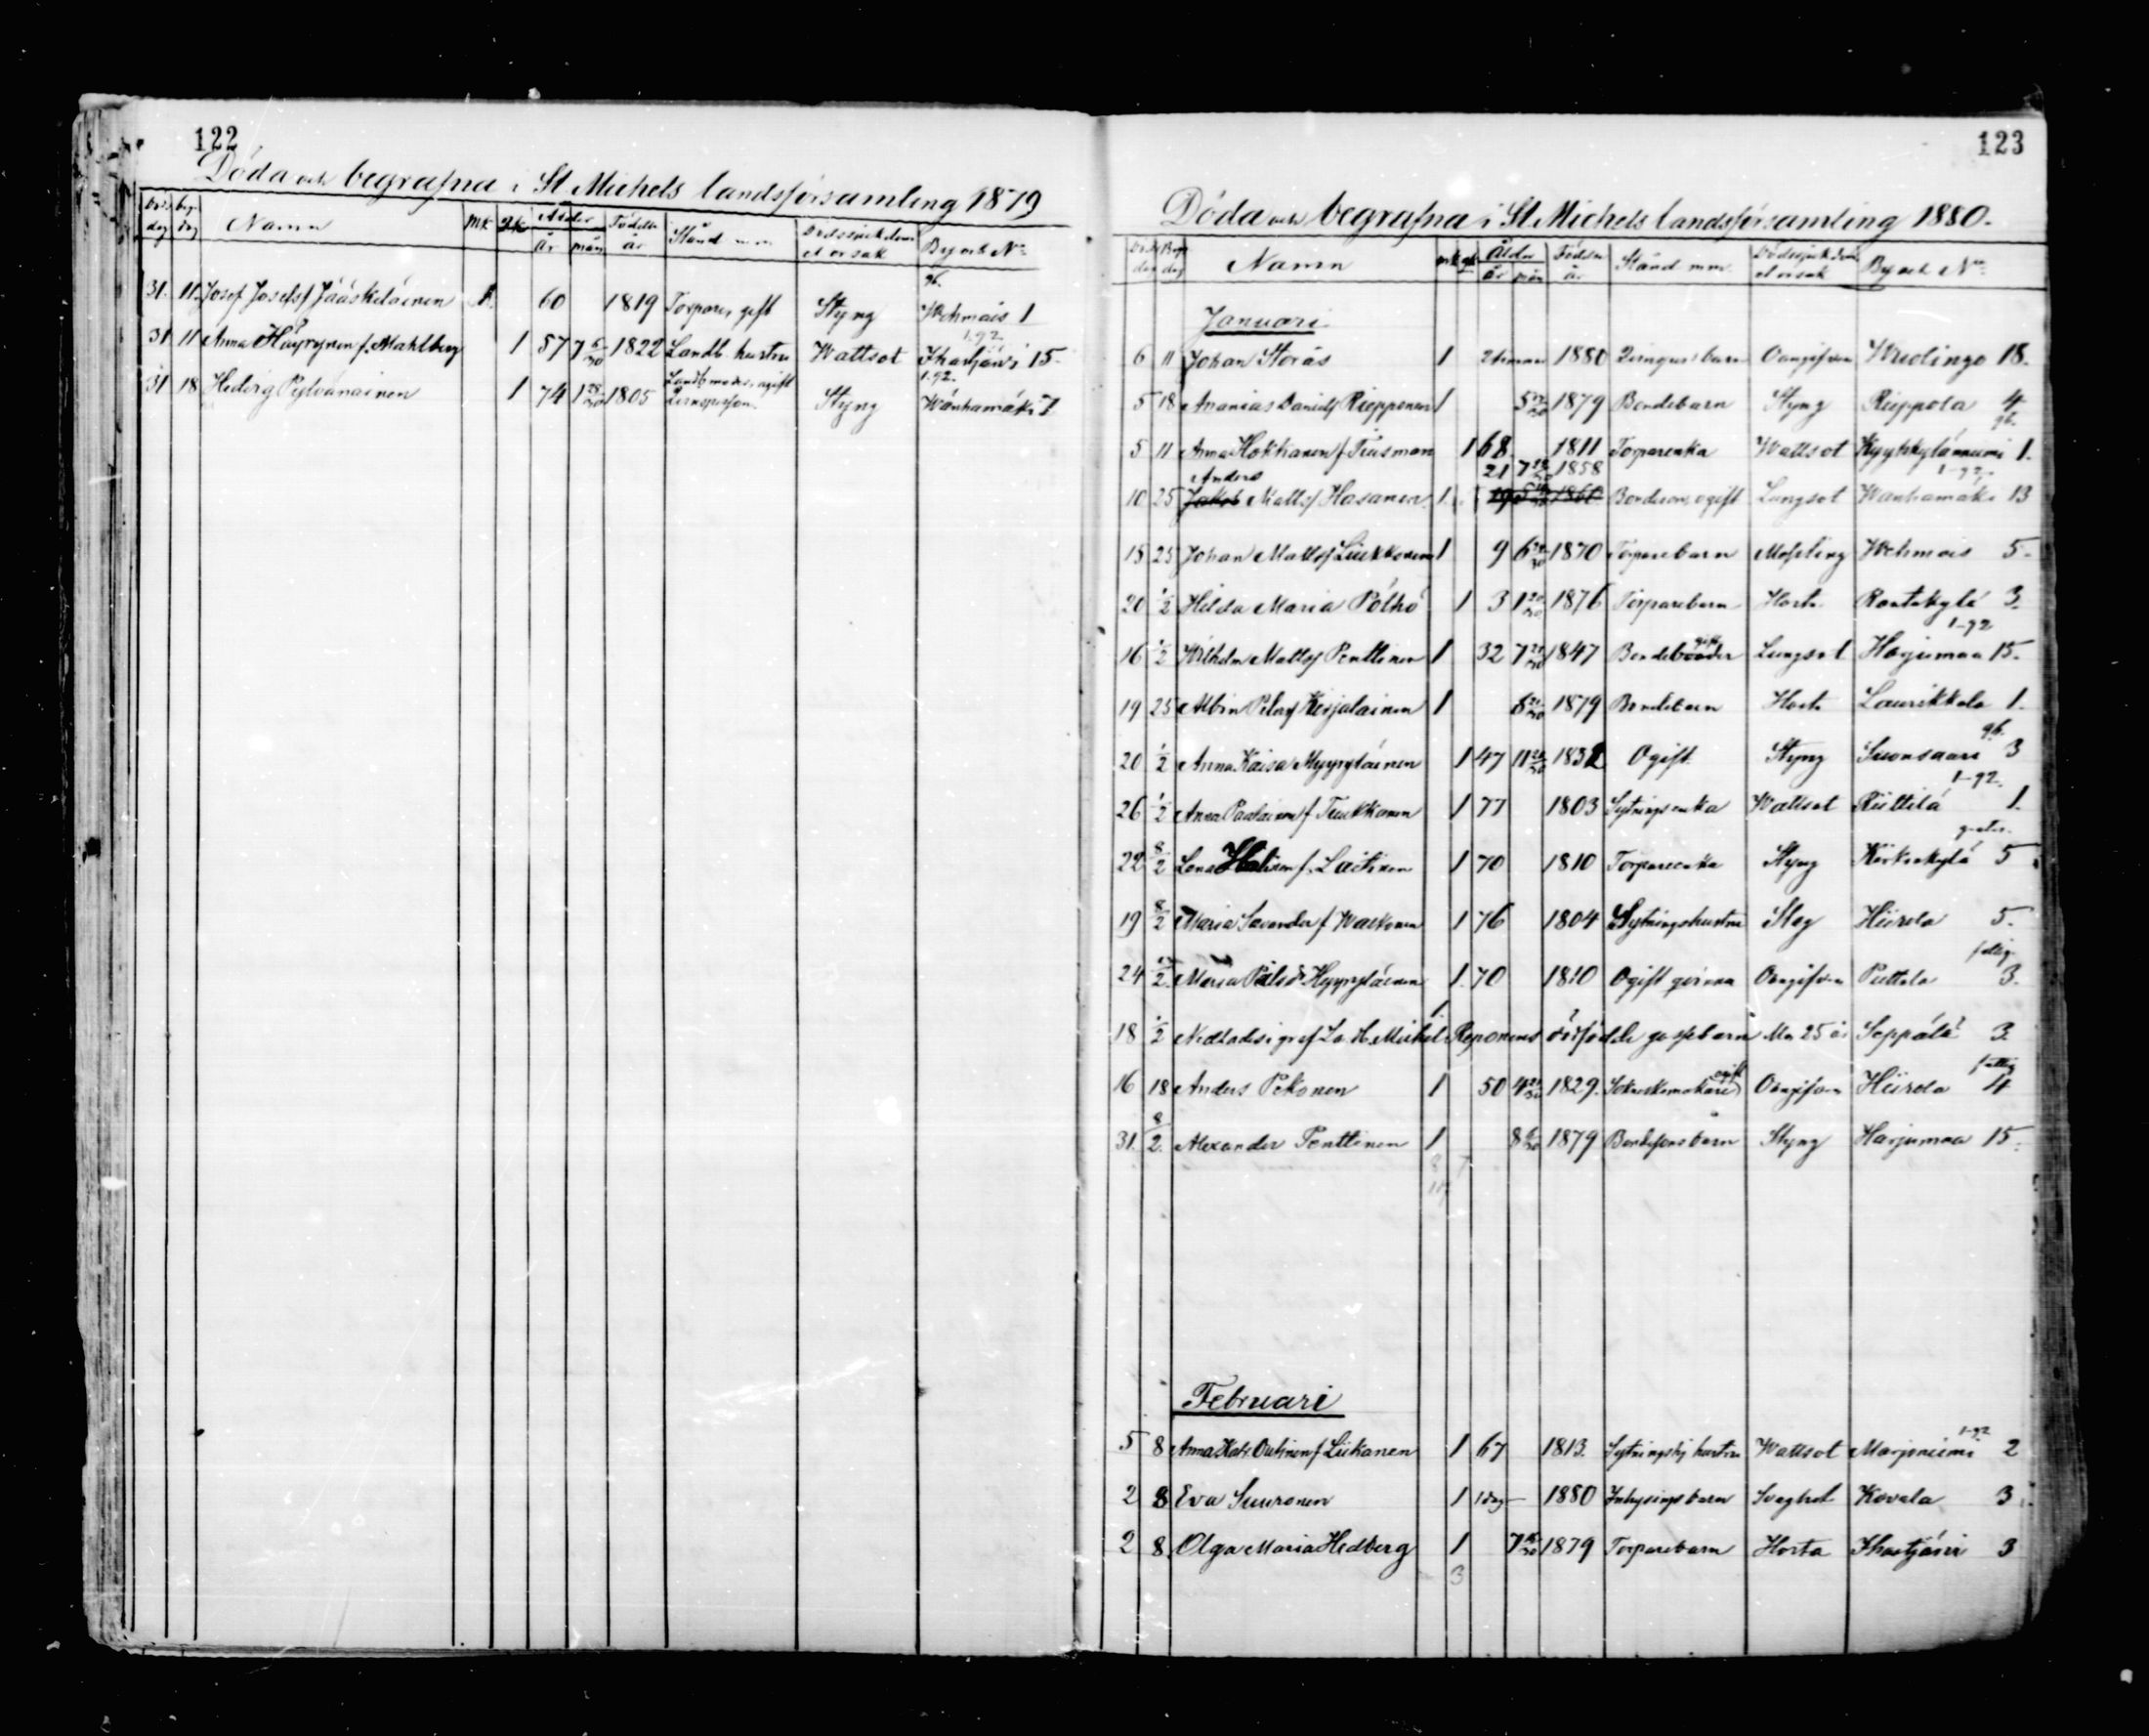 122
Döda och begrafna i St Michels landsförsamling 1879
Döds dag beg. dag Namn Mk Qk Ålder år mån Födelse år Stånd m.m. Dödssjukdom el orsak By och No
31. 11. Josef Josefsf Jääskeläinen 1. 60 1819 Torpare, gift Styng Wehmais 1
31 11 Anna f. Mahlberg 1 57 7 5/30 1822 Landb. hustru Wattsot Ihastjärvi 15.
31 18 Hedvig Pylvänäinen 1 74 1 28/30 1805 Styng Wanhamäki 7.
123
Döda och begrafna i St Michels landsförsamling 1880.
Döds dag Begr. dag Namn mk qk Ålder år mån Födelse år Stånd m.m. Dödssjukdom el orsak By och No
Januari
6 11 Johan Storås 1 1880 barn Oangifven 18.
5 18 Ananias Danielsf Riepponen 1 5 1879 Bondebarn Styng Rieppola 4
5 11 Anna Hokkanen f. Tiusman 1 68. 1811 Torparenka Wattsot Kyyhkylänniemi 1.
Anders 21 7 1858 1-92
10 25 Jakob Mattsf Hasanen 1. 19 5 1860 Bondeson, ogift Lungsot Wanhamäki 13
15 25 Johan Mattsf Liukkonen 1 9 6 1870 Torparebarn Messling Wehmais 5.
20 1/2 Hilda Maria Pölhö 1 3 1 20/30 1876 Torparebarn Hosta Rantakylä 3.
16 1/2 Wilhelm Mattsf Penttinen 1 32 7 1847 Bondebroder gift Lungsot Harjumaa 15.
19 25 Albin Petersf Kirjalainen 1 1879 Bondebarn Hosta Laurikkala 1.
20 1/2 Anna Kaisa Myyryläinen 1 47 11 1832 Ogift Styng Suonsaari 3
26 1/2 Anna f Tuukkanen 1 77 1803 Sytningsenka Wattsot Riittilä 1.
22 8/2 Lena f. Laitinen 1 70 1810 Torparenka Styng 5
19 8/2 Maria Savander f 1 76 1804 Sytningshustru Slag Hiirola 5.
24 Maria Hyyryläinen 1. 70 1810 Ogift qvinna Oangifven 3.
18 1/2 Nedlades i graf Mikel Reponens dödfödde gossebarn Mor 25 år Seppälä 3
16 18 Anders Pekonen 1 50 4 1829. ogift Oangifven Hiirola 4
31. 8/2. Alexander Penttinen 1 8 1879 Bondesons barn Styng Harjumaa 15.
Februari
5 8 Anna Kat. Outinen f Liukanen 1 67 1813. hustru Wattsot Marjoniemi 2
2 8 Eva Suuronen 1 1 dag — 1880 Inhysings barn Svaghet Kovala 3
2 8. Olga Maria Hedberg 1 7 1879 Torparebarn Hosta Ihastjärvi 3
3